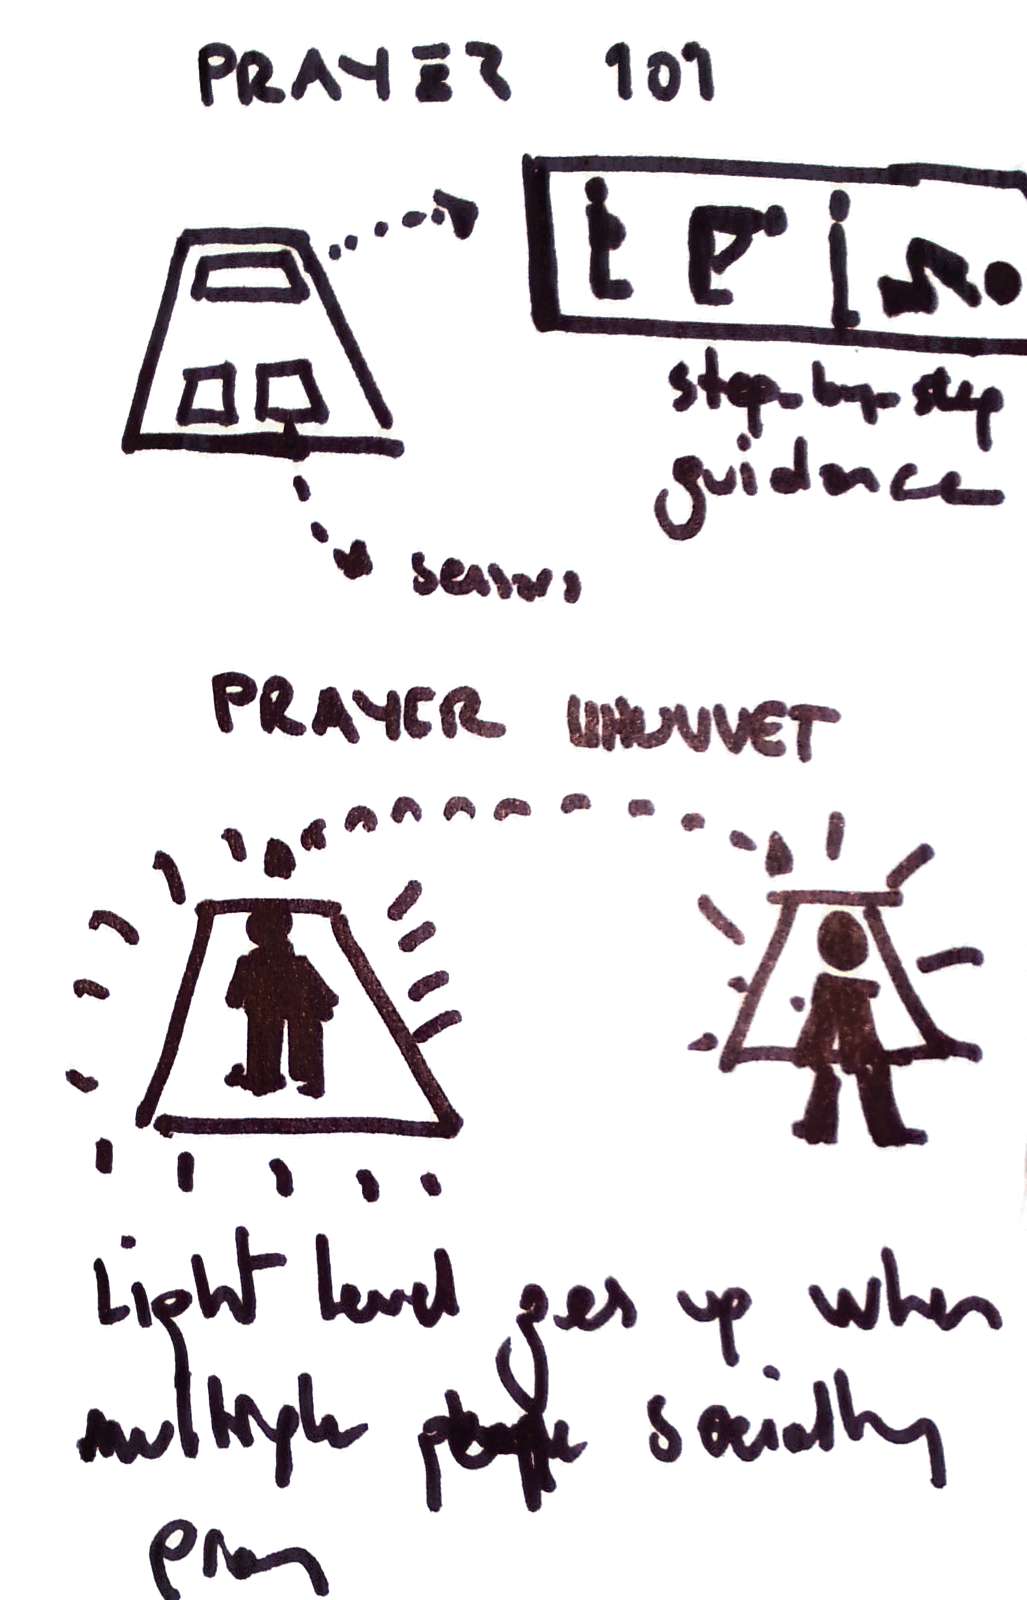 PRAYER 101
step-by-step
guidance
sensors
PRAYER
Light level goes up when
multiple people socially
pray